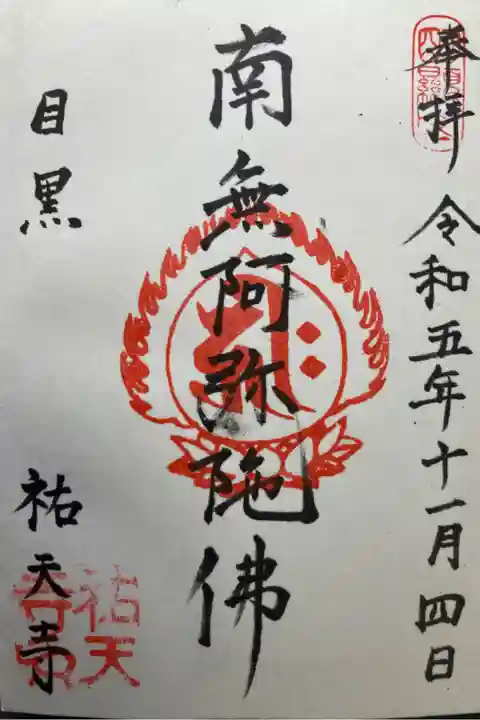 奉拝 令和五年十一月四日
南無阿弥陀佛
目黒 祐天寺
祐天
寺印